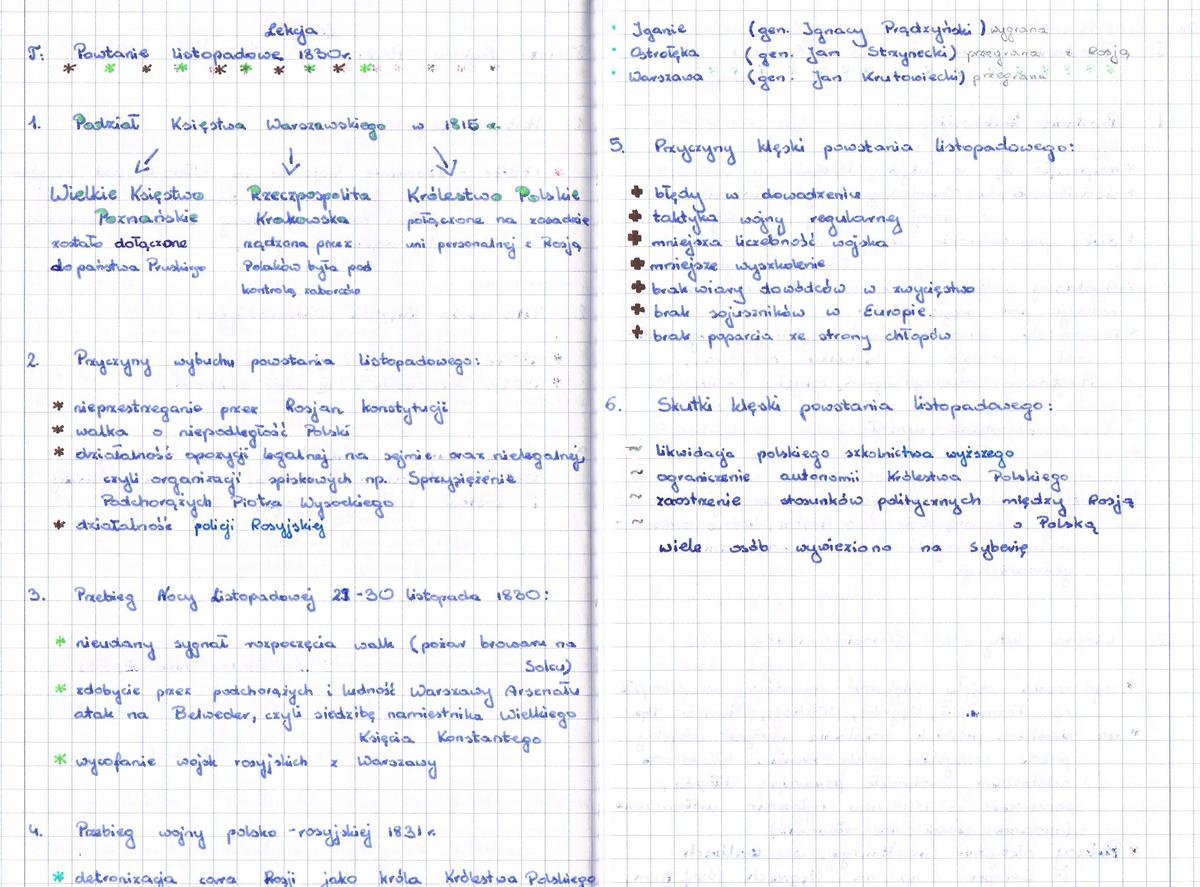 Lekcja
T: Powtanie listopadowe 1830r.
1. Podział Księstwa Warszawskiego w 1815 r.
Wielkie Księstwo Poznańskie
zostało dołączone
do państwa Pruskiego
Rzeczpospolita
Krakowska
rządzona przez
Polaków była pod
kontrolą zaborców
Królestwo Polskie
połączone na zasadzie
uni personalnej z Rosją
2. Przyczyny wybuchu powstania listopadowego:
* nieprzestrzeganie przez Rosjan konstytucji
* walka o niepodległość Polski
* działalność opozycji legalnej na sejmie oraz nielegalnej,
czyli organizacji spiskowych np. Sprzysiężenie
Podchorążych Piotra Wysockiego
* działalność policji Rosyjskiej
3. Przebieg Nocy Listopadowej 29-30 listopada 1830:
* nieudany sygnał rozpoczęcia walk (pożar browaru na
Solcu)
* zdobycie przez podchorążych i ludność Warszawy Arsenału
atak na Belweder, czyli siedzibę namiestnika Wielkiego
Księcia Konstantego
* wycofanie wojsk rosyjskich z Warszawy
4. Przebieg wojny polsko-rosyjskiej 1831 r.
* detronizacja cara Rosji jako króla Królestwa Polskiego
• Iganie (gen. Ignacy Prądzyński) wygrana
• Ostrołęka (gen. Jan Strzynecki) przegrana z Rosją
• Warszawa (gen. Jan Krutowiecki) przegrana
5. Przyczyny klęski powstania listopadowego:
+ błędy w dowodzeniu
+ taktyka wojny regularnej
+ mniejsza liczebność wojska
+ mniejsze wyszkolenie
+ brak wiary dowódców w zwycięstwo
+ brak sojuszników w Europie.
+ brak poparcia ze strony chłopów
6. Skutki klęski powstania listopadowego:
~ likwidacja polskiego szkolnictwa wyższego
~ ograniczenie autonomii Królestwa Polskiego
~ zaostrzenie stosunków politycznych między Rosją
~ a Polską
wiele osób wywieziono na Syberię